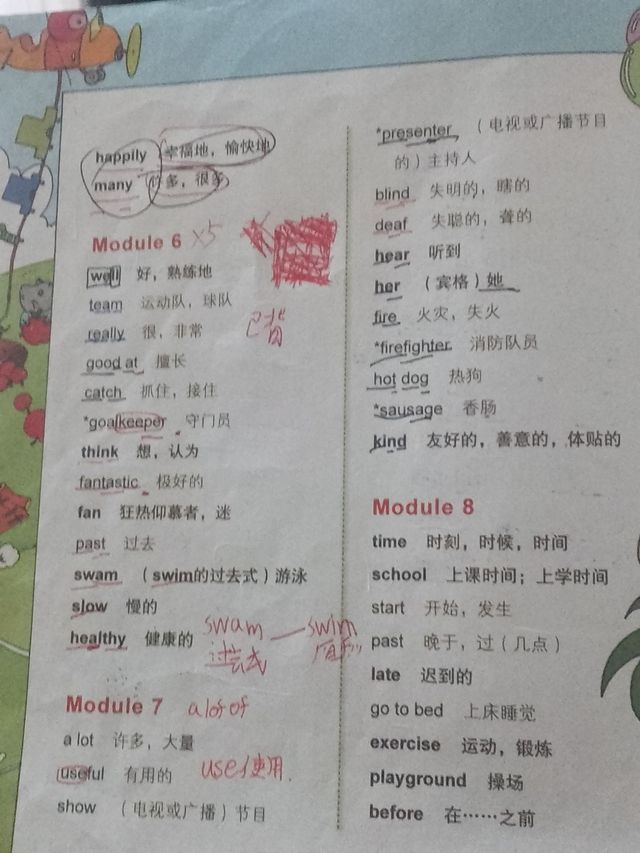 happily 幸福地，愉快地
many 许多，很多
Module 6 x5
well 好，熟练地
team 运动队，球队
really 很，非常 已背
good at 擅长
catch 抓住，接住
*goalkeeper 守门员
think 想，认为
fantastic 极好的
fan 狂热仰慕者，迷
past 过去
swam （swim的过去式）游泳
slow 慢的
healthy 健康的 swam — swim
过去式
Module 7 a lot of
a lot 许多，大量
useful 有用的 use使用.
show （电视或广播）节目
*presenter （电视或广播节目
的）主持人
blind 失明的，瞎的
deaf 失聪的，聋的
hear 听到
her （宾格）她
fire 火灾，失火
*firefighter 消防队员
hot dog 热狗
*sausage 香肠
kind 友好的，善意的，体贴的
Module 8
time 时刻，时候，时间
school 上课时间；上学时间
start 开始，发生
past 晚于，过（几点）
late 迟到的
go to bed 上床睡觉
exercise 运动，锻炼
playground 操场
before 在……之前